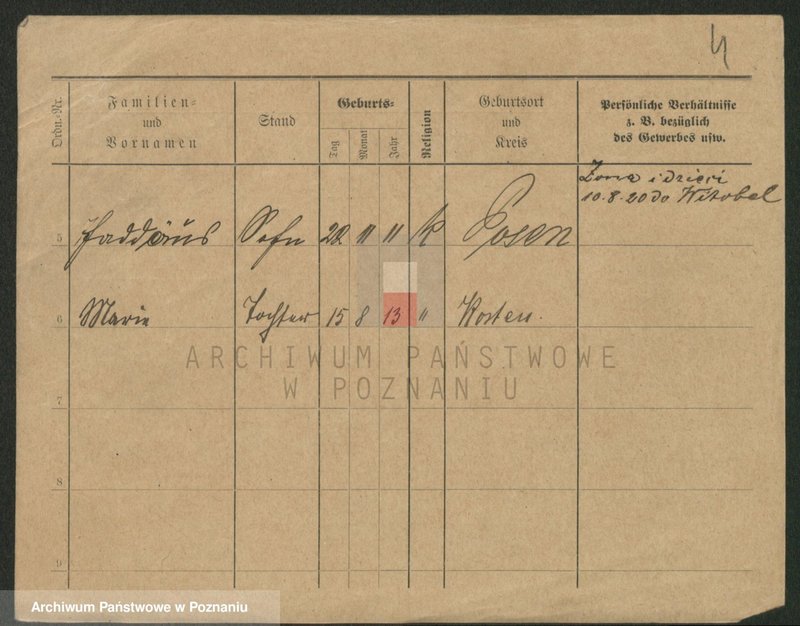 4
Ordn.-Nr.
Familien-
und
Vornamen
Stand
Geburts-
Tag
Monat
Jahr
Religion
Geburtsort
und
Kreis
Persönliche Verhältnisse
z. B. bezüglich
des Gewerbes usw.
Żona i dzieci
10.8.20 do Witobel
5 Faddäus Sohn 22 11 11 k Posen
6 Marie Tochter 15 8 13 " Kosten.
ARCHIWUM PAŃSTWOWE
W POZNANIU
7
8
9
Archiwum Państwowe w Poznaniu